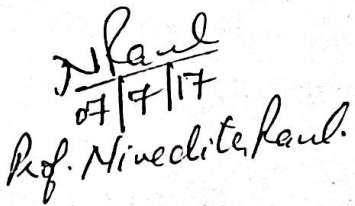 NRaul
07/7/17
Prof. Nivedita Raul.